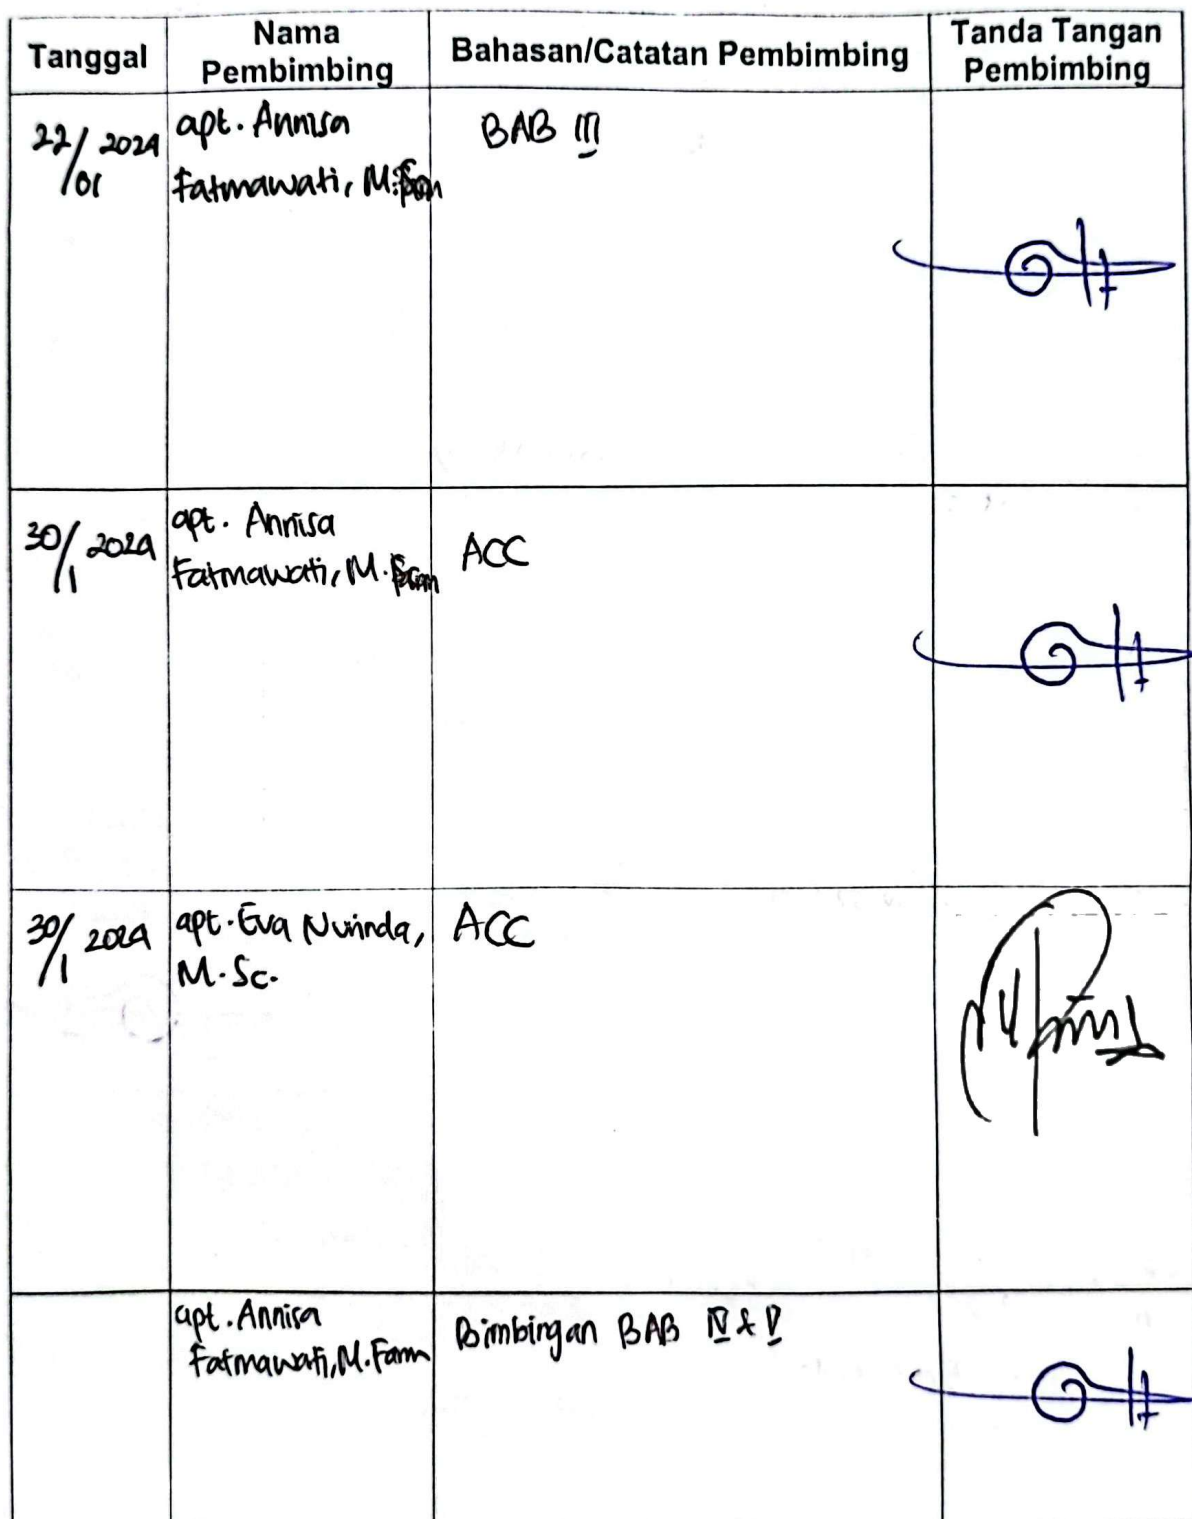 Tanggal
Nama
Pembimbing
Bahasan/Catatan Pembimbing
Tanda Tangan
Pembimbing
22/01 2024
apt. Annisa
Fatmawati, M.Farm
BAB III
30/1 2024
apt. Annisa
Fatmawati, M.Farm
ACC
30/1 2024
apt. Eva Nurinda,
M.Sc.
ACC
apt. Annisa
Fatmawati, M.Farm
Bimbingan BAB IV & V